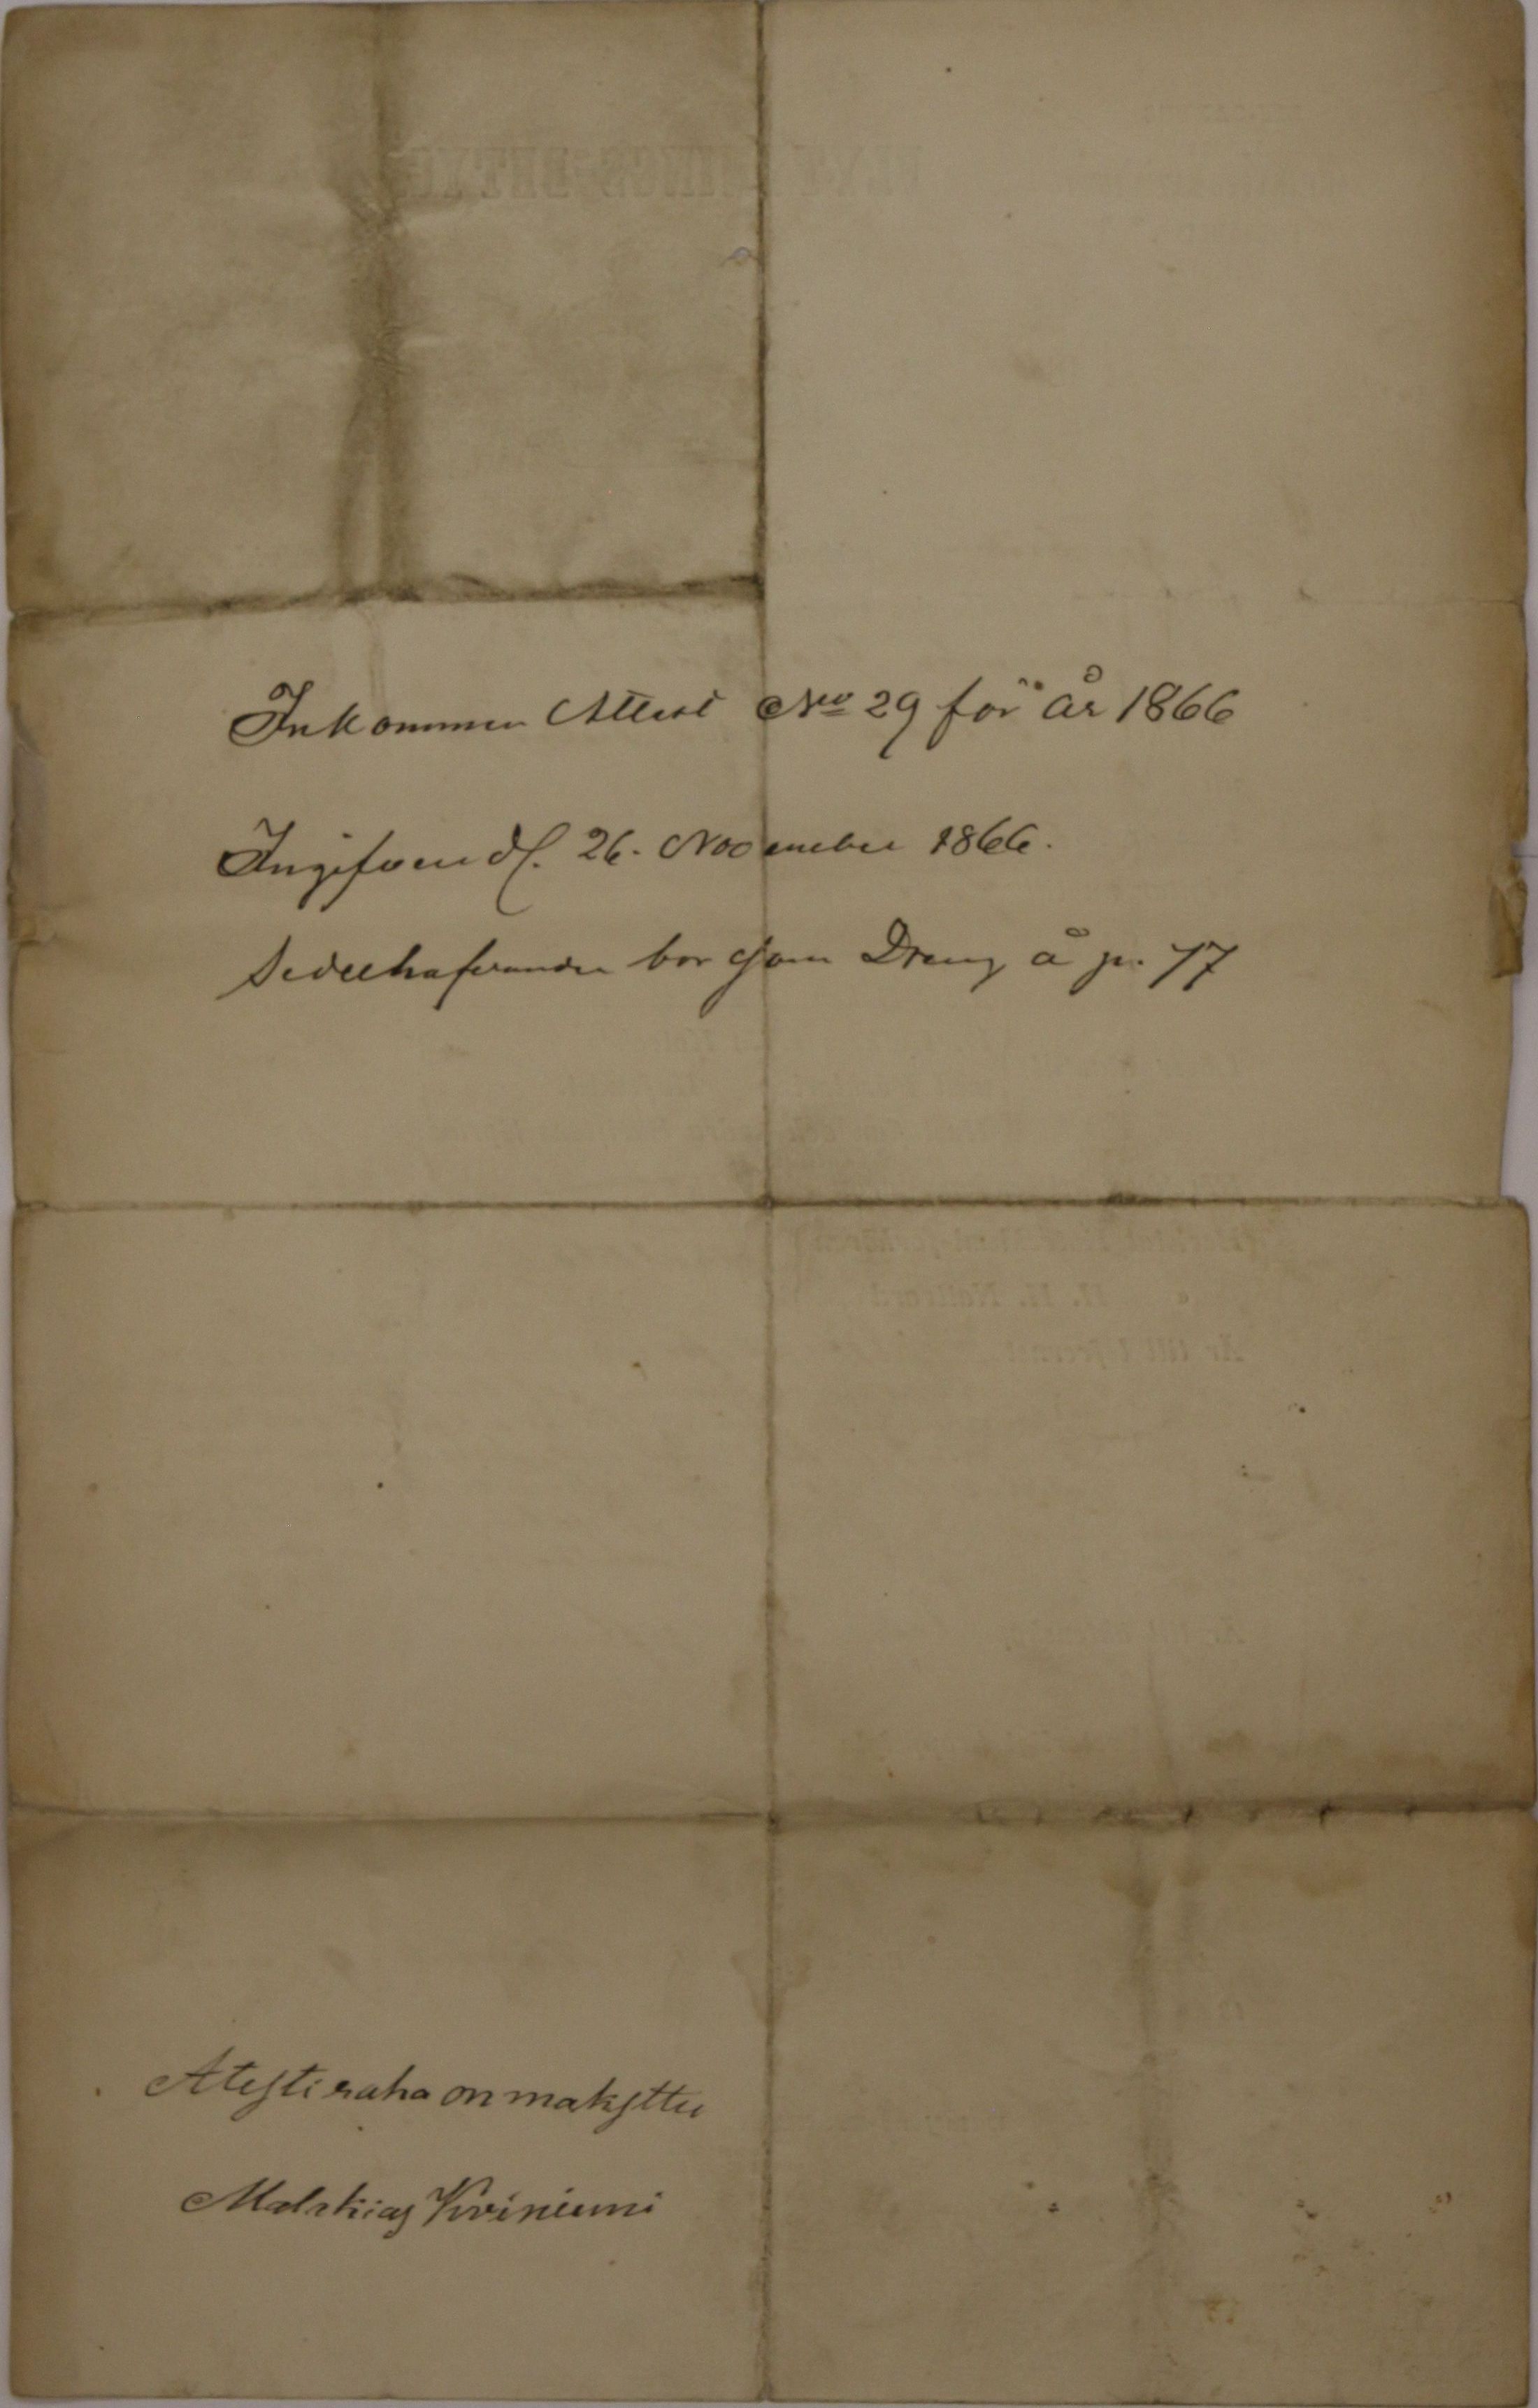 Inkommen Attest No 29 för år 1866
Ingifven d. 26. November 1866.
Sedelhafvanden bor som Dreng å p. 17
Atestiraha on maksttu
Malakias Kviniemi